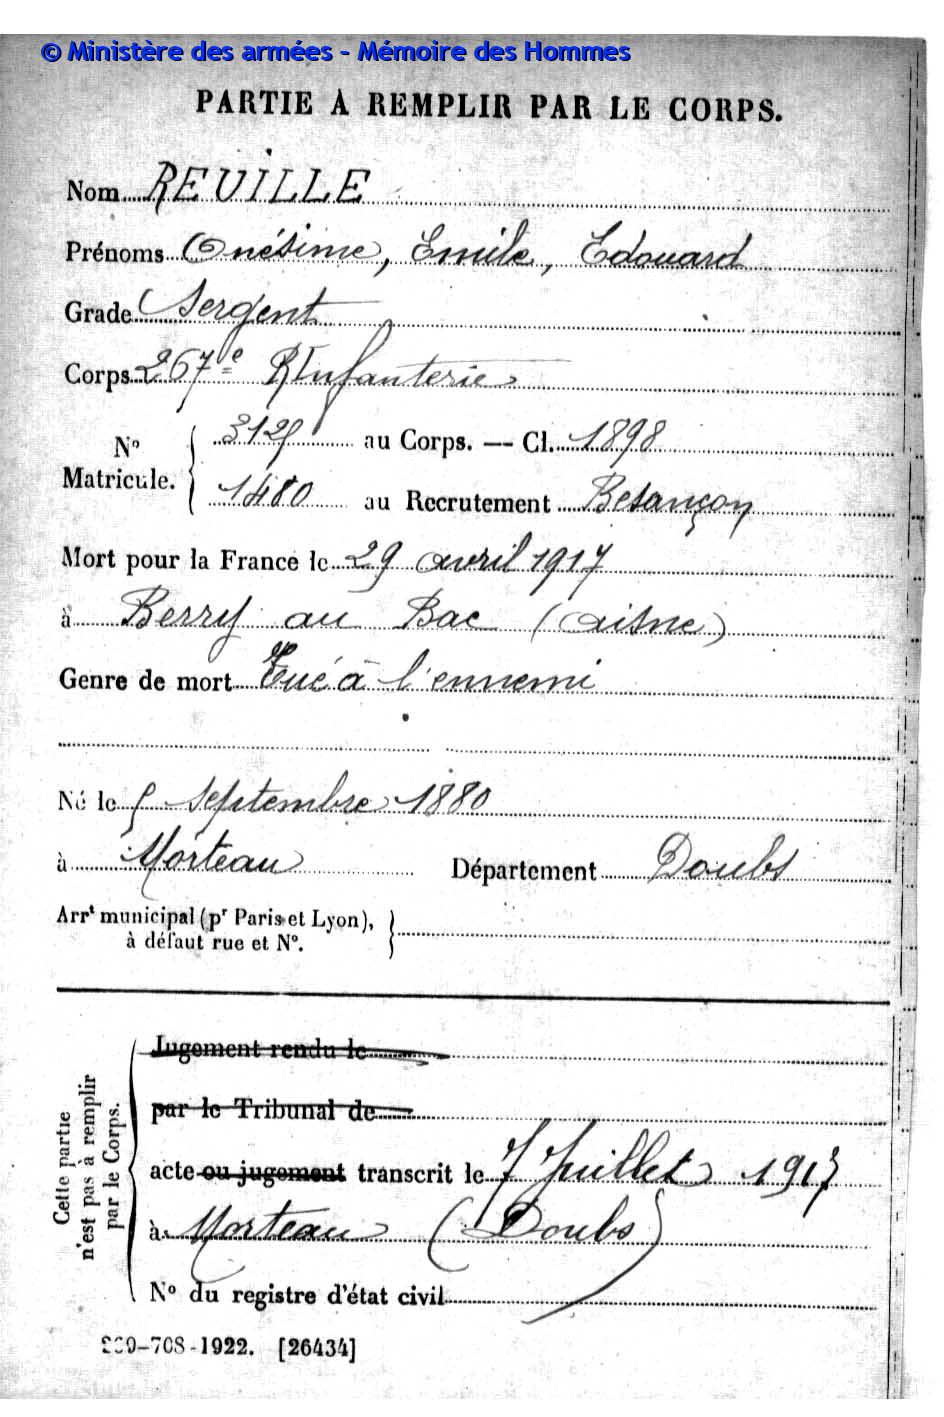 © Ministère des armées - Mémoire des Hommes
PARTIE A REMPLIR PAR LE CORPS.
Nom REUILLE
Prénoms Onésime, Emile, Edouard
Grade Sergent
Corps 267e R Infanterie
No Matricule. { au Corps. — Cl. 1898
1480 au Recrutement Besançon
Mort pour la France le 29 avril 1917
à Berry au Bac (Aisne)
Genre de mort Tué à l'ennemi
Né le 5 septembre 1880
à Morteau Département Doubs
Arrt municipal (pr Paris et Lyon),
à défaut rue et No.
Cette partie
n'est pas à remplir
par le Corps.
Jugement rendu le
par le Tribunal de
acte ou jugement transcrit le 7 Juillet 1917
à Morteau (Doubs)
No du registre d'état civil
-708-1922. [26434]